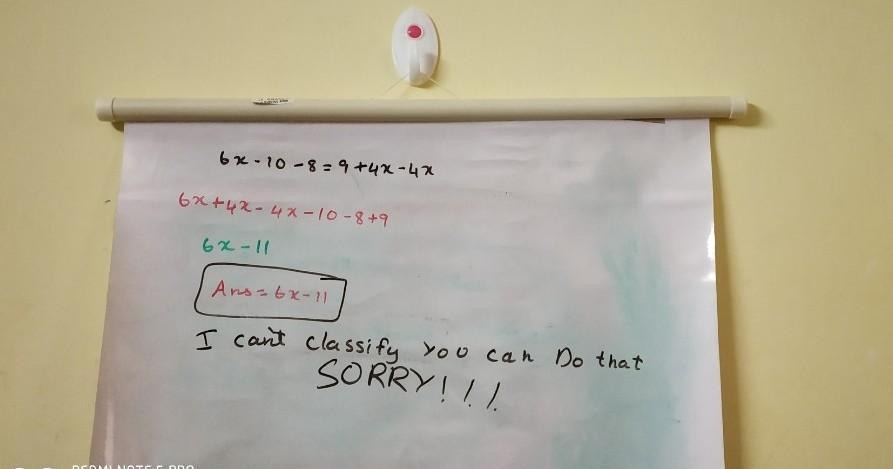 6x - 10 - 8 = 9 + 4x - 4x
6x + 4x - 4x - 10 - 8 + 9
6x - 11
Ans = 6x - 11
I can't classify you can Do that
SORRY!!!
REDMI NOTE 5 PRO